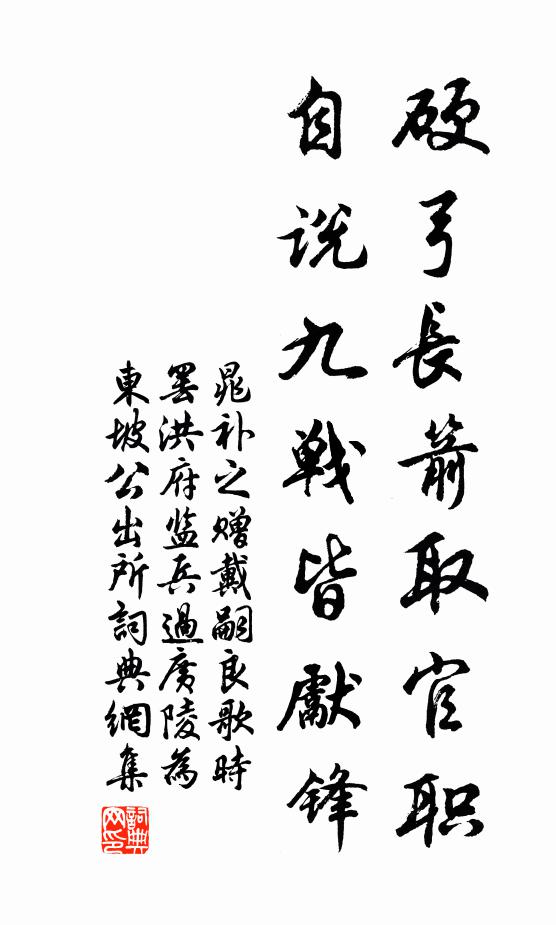 硬弓長箭取官职
自説九戦皆獻锋
晁补之赠戴嗣良歌時
罢洪府监兵過廣陵為
東坡公出所詞典網集
詞典网印